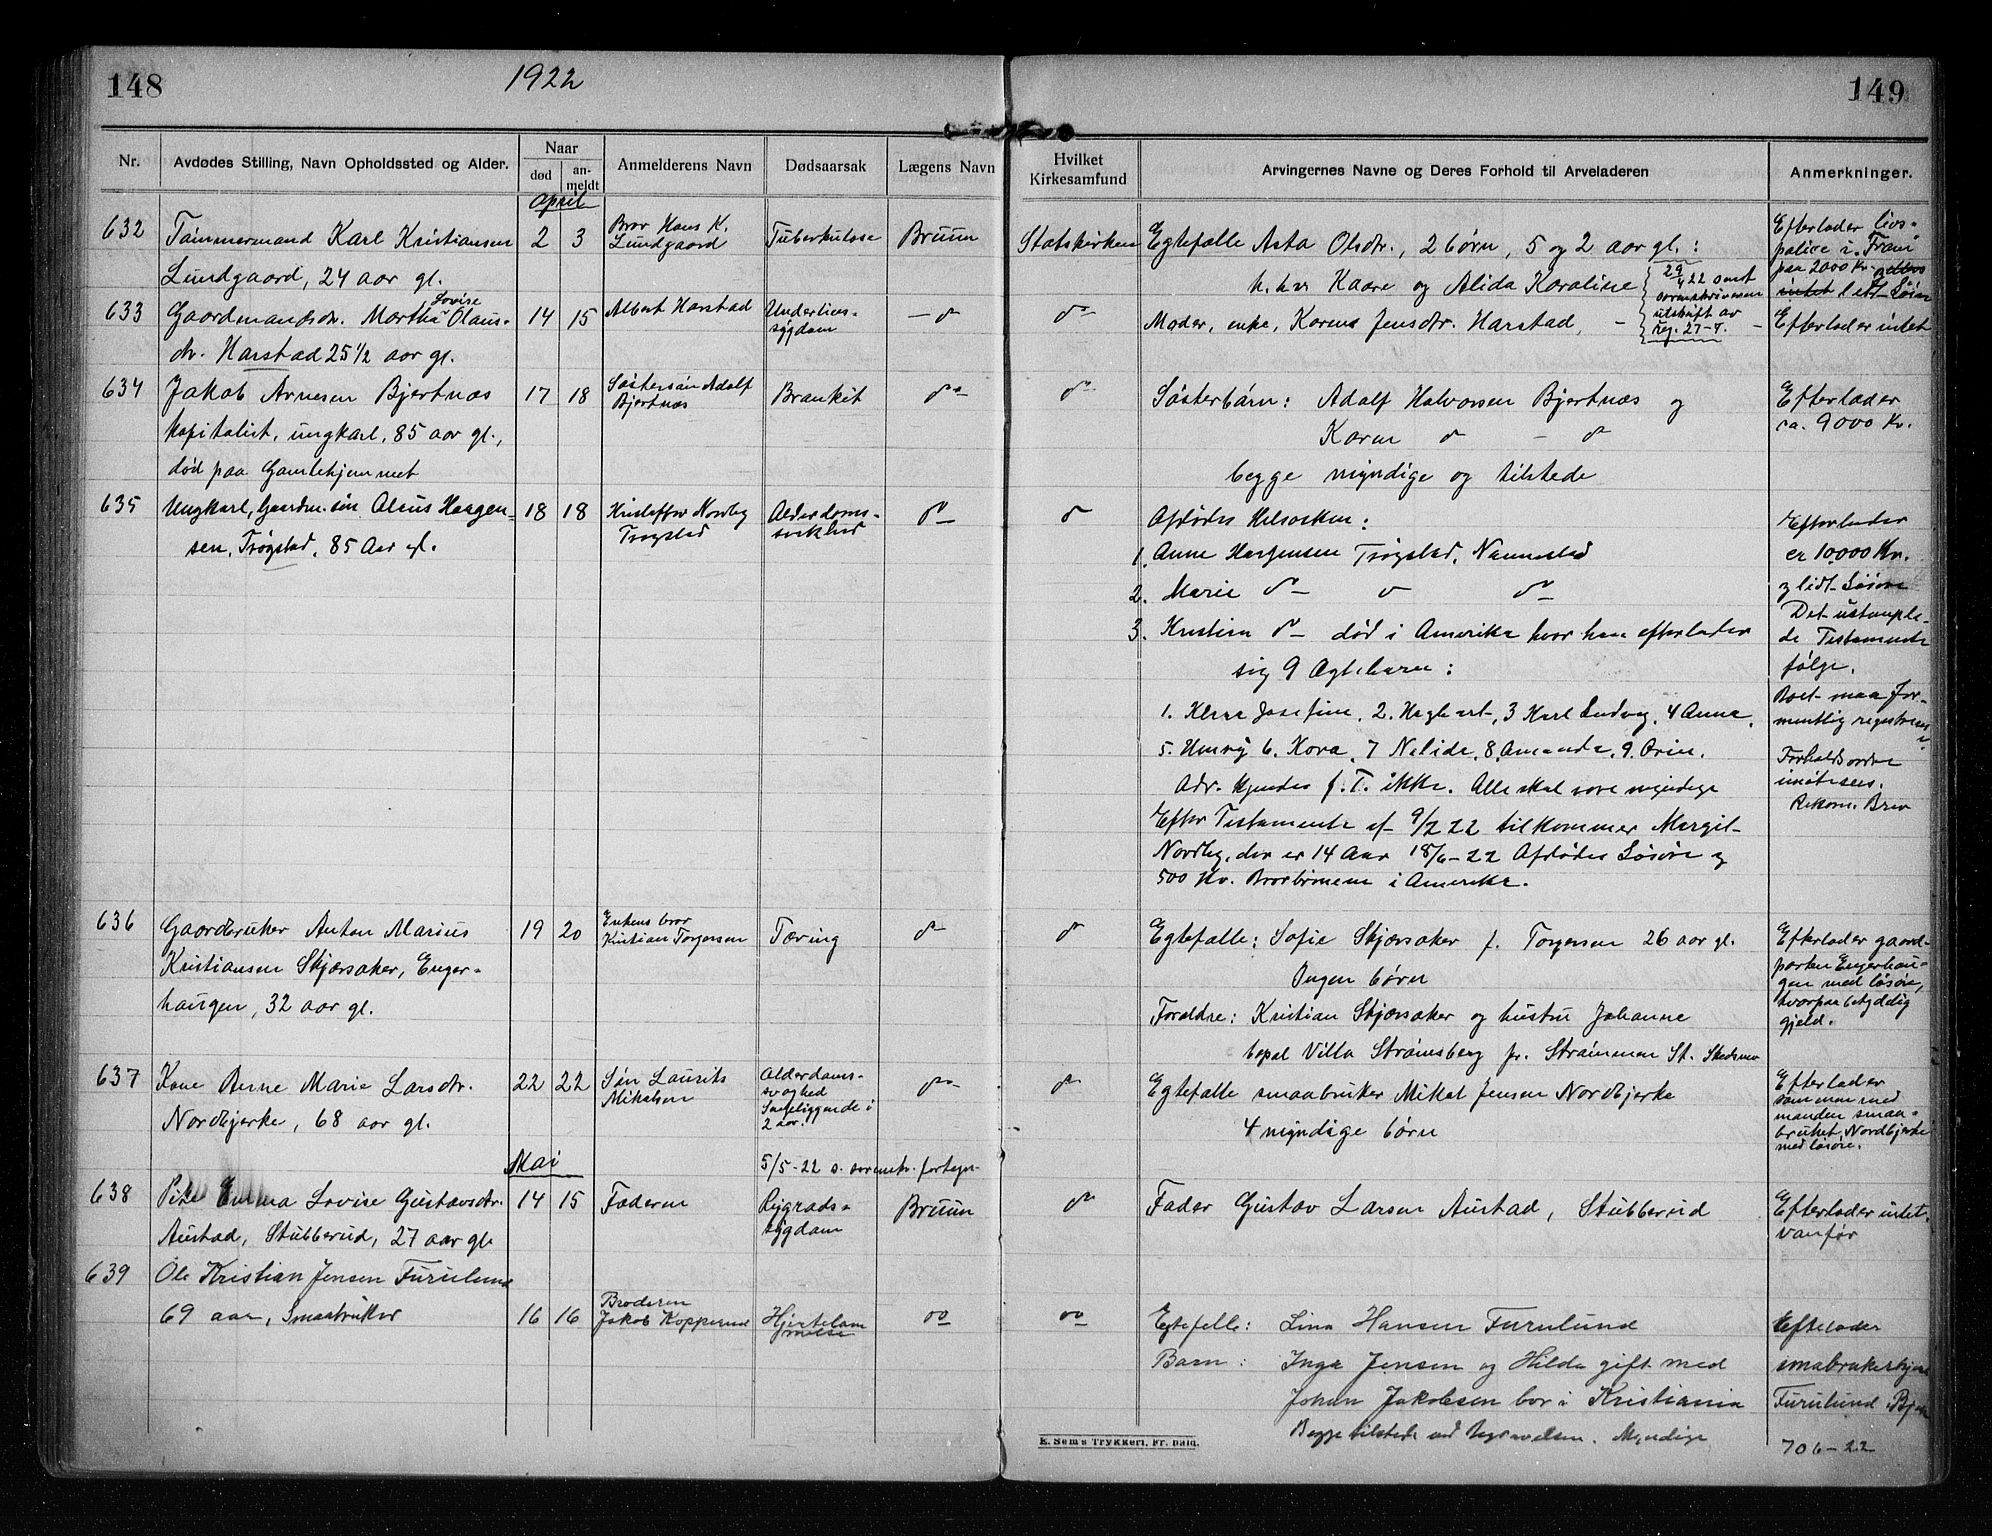 148
1922
149
Nr.
Avdødes Stilling, Navn Opholdssted og Alder.
Naar
død
an-
meldt
Anmelderens Navn
Dødsaarsak
Lægens Navn
Hvilket
Kirkesamfund
Arvingernes Navne og Deres Forhold til Arveladeren
Anmerkninger.
April
632
Tømmermand Karl Kristiansen
Lundgaard, 24 aar gl.
2 3
Bror Hans K.
Lundgaard
Tuberkulose
Bruun
Statskirken
Egtefælle Asta Olsdtr., 2 børn, 5 og 2 aar gl.:
h.hv Kaare og Alida Karoline
29/4 22 sendt
sorenskriveren
utskrift av
reg. 27-4.
Efterlader livs-
polise i Fram
paa 2000 Kr.
intet litt løsøre
633
Gaardmandsdtr. Martha Lovise Olaus-
dtr. Harstad 25 1/2 aar gl.
14 15
Albert Harstad
Underlivs-
sygdom
Moder, enke, Karen Jensdtr. Harstad,
Efterlader intet
634
Jakob Arnesen Bjertnæs
kapitalist, ungkarl, 85 aar gl.,
død paa Gamlehjemmet
17 18
Søstersøn Adolf
Bjertnæs
Bronkit
Søsterbørn: Adolf Halvorsen Bjertnæs og
Karen
begge myndige og tilstede
Efterlader
ca. 9000 Kr.
635
Ungkarl, Gaardm. søn Olaus Haagen-
sen, Trøgstad, 85 Aar gl.
18 18
Kristoffer Nordby
Trøgstad
Alderdoms-
svækked
Afdødes Helsøsken:
1. Anne Haagensen Trøgstad, Nannestad
2. Marie
3. Kristian død i Amerika hvor han efterlader
sig 9 Ægtebarn:
1. Klara Josefine, 2. Hagbart, 3 Karl Ludvig, 4 Anna,
5. Henry 6. Kora, 7 Nelide, 8. Amanda, 9. Orin.
Adr. kjendes f. T. ikke. Alle skal være myndige
Efter Testamente af 9/2 22 tilkommer Margit
Nordby, der er 14 Aar 18/6-22 Afdødes Løsøre og
500 Kr. Brorbørnene i Amerika.
Efterlader
ca 10,000 Kr.
og lidt Løsøre
Det ustemple-
de Testamente
følge.
Boet maa for-
mentlig registreres
Forholdsordre
imøtesees.
Rekom. Brev
636
Gaardbruker Anton Marius
Kristiansen Skjærsaker, Enger-
haugen, 32 aar gl.
19 20
Enkens bror
Kristian Torgersen
Tæring
Egtefælle: Sofie Skjærsaker f. Torgersen 26 aar gl.
Ingen børn
Foraldre: Kristian Skjærsaker og hustru Johanne
bopæl Villa Strømsberg pr. Strømmen St. Skedsmo
Efterlader gaard-
parten Engerhau-
gen med løsøre,
hvorpaa betydelig
gjeld.
637
Kone Anne Marie Larsdtr.
Nordbjerke, 68 aar gl.
22 22
Søn Laurits
Mikalsen
Alderdoms-
svaghed
Sengeliggende i
2 aar.
Egtefælle smaabruker Mikal Jensen Nordbjerke
4 myndige børn
Efterlader
sammen med
manden smaa-
bruket Nordbjerke
med løsøre.
Mai
5/5-22 s. sorenskr. fortegn.
638
Pike Emma Lovise Gustavsdtr.
Austad, Stubberud, 27 aar gl
14 15
Faderen
Rygrads-
sygdom
Bruun
Fader Gustav Larsen Austad, Stubberud
Efterlader intet.
vanfør
639
Ole Kristian Jensen Furulund
69 aar, Smaabruker
16 16
Broderen
Jakob Kopperud
Hjertelam
melse
Egtefelle: Lina Hansen Furulund
Barn: Inga Jensen og Hilda gift med
Johan Jakobsen bor i Kristiania
Begge tilstede ved Begravelsen. Myndige
Efterlader
smabrukerhjem
Furulund
706-22
E. Sem's Trykkeri, Fr.hald.